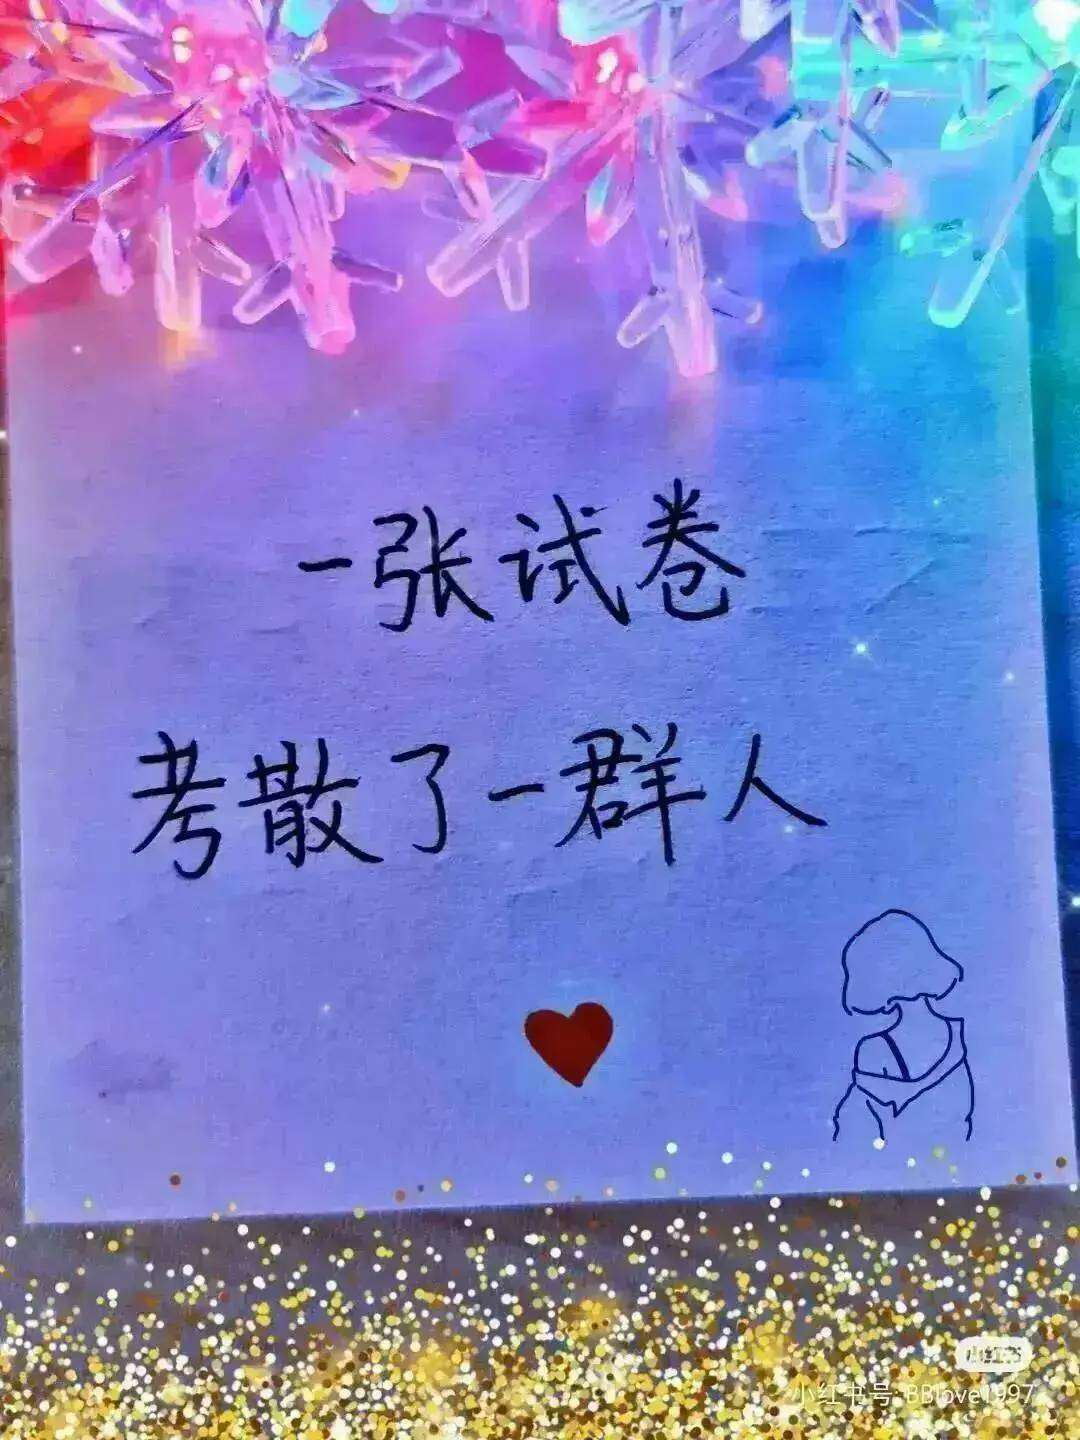 一张试卷
考散了一群人
小红书
小红书号:BBlove1997